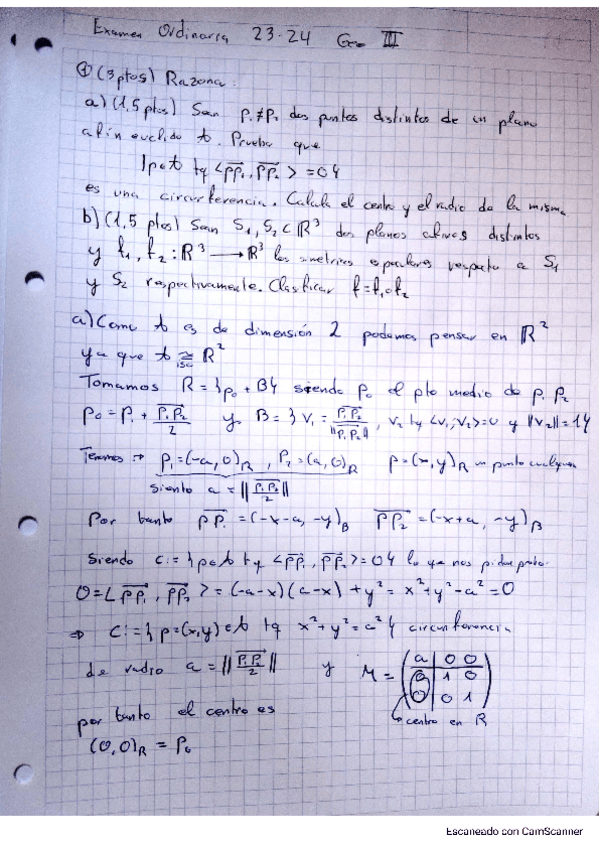 Examen Ordinaria 23-24 Geo III
① (3ptos) Razona:
a) (1,5 ptos) Sean p₁≠p₂ dos puntos distintos de un plano
afín euclideo A. Prueba que
{p∈A tq <pp₁, pp₂> = 0}
es una circunferencia. Calcula el centro y el radio de la misma
b) (1,5 ptos) Sean S₁, S₂ ⊂ ℝ³ dos planos afines distintos
y f₁, f₂ : ℝ³ → ℝ³ las simetrías especulares respecto a S₁
y S₂ respectivamente. Clasificar f = f₁∘f₂
a) Como A es de dimensión 2 podemos pensar en ℝ²
ya que A ≅iso ℝ²
Tomamos R = {p₀ + B} siendo p₀ el pto medio de p₁ p₂
p₀ = p₁ + p₁p₂/2 y B = {v₁ = p₁p₂/||p₁p₂||, v₂ tq <v₁,v₂>=0 y ||v₂||=1}
Tenemos → p₁=(-a, 0)R , p₂=(a, 0)R p=(x,y)R un punto cualquiera
siento a = ||p₁p₂/2||
Por tanto pp₁ = (-x-a, -y)B pp₂ = (-x+a, -y)B
Siendo C := {p∈A tq <pp₁, pp₂> = 0} lo que nos piden probar
0 = <pp₁, pp₂> = (-a-x)(a-x) + y² = x²+y²-a² = 0
⇒ C := {p=(x,y)∈A tq x²+y²=a²} circunferencia
de radio a = ||p₁p₂/2|| y M = (a | 0 0
0 | 1 0
0 | 0 1)
por tanto el centro es
↳ centro en R
(0,0)R = p₀
Escaneado con CamScanner